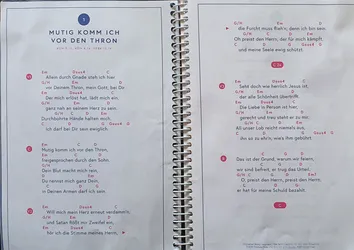 7
MUTIG KOMM ICH
VOR DEN THRON
V1
G/H Em D
Allein durch Gnade steh ich hier
G/H Em Dsus4 C
vor Deinem Thron, mein Gott, bei Dir.
Em Dsus4 C
Der mich erlöst hat, lädt mich ein,
G/H Em Dsus4 C
ganz nah an seinem Herz zu sein.
G/H C G/H C
Durchbohrte Hände halten mich.
G Dsus4 D
Ich darf bei Dir sein ewiglich.
C
G C
Mutig komm ich vor den Thron,
Em D
freigesprochen durch den Sohn.
G/H C
Dein Blut macht mich rein,
Em D
Du nennst mich ganz Dein,
C D G
in Deinen Armen darf ich sein.
V2
G/H Em D
Will mich mein Herz erneut verdammen,
G/H Em Dsus4 C
und Satan flößt mir Zweifel ein,
Em Dsus4 C
hör ich die Stimme meines Herrn,
G/H Em Dsus4 C
die Furcht muss fliehn, denn ich bin sein.
G/H C G/H C
Oh preist den Herrn, der für mich kämpft
G Dsus4 D
und meine Seele ewig schützt.
V3
G/H Em D
Seht doch wie herrlich Jesus ist,
G/H Em Dsus4 C
der alle Schönheit übertrifft.
Em Dsus4 C
Die Liebe in Person ist hier,
G/H Em Dsus4 C
gerecht und treu steht er zu mir.
G/H C G/H C
All unser Lob reicht niemals aus,
G Dsus4 D
ihn so zu ehr'n, wie ihm gebührt.
B
Das ist der Grund, warum wir feiern,
wir sind befreit, er trug das Urteil.
O, preist den Herren, preist den Herrn,
er hat für meine Schuld bezahlt.
C